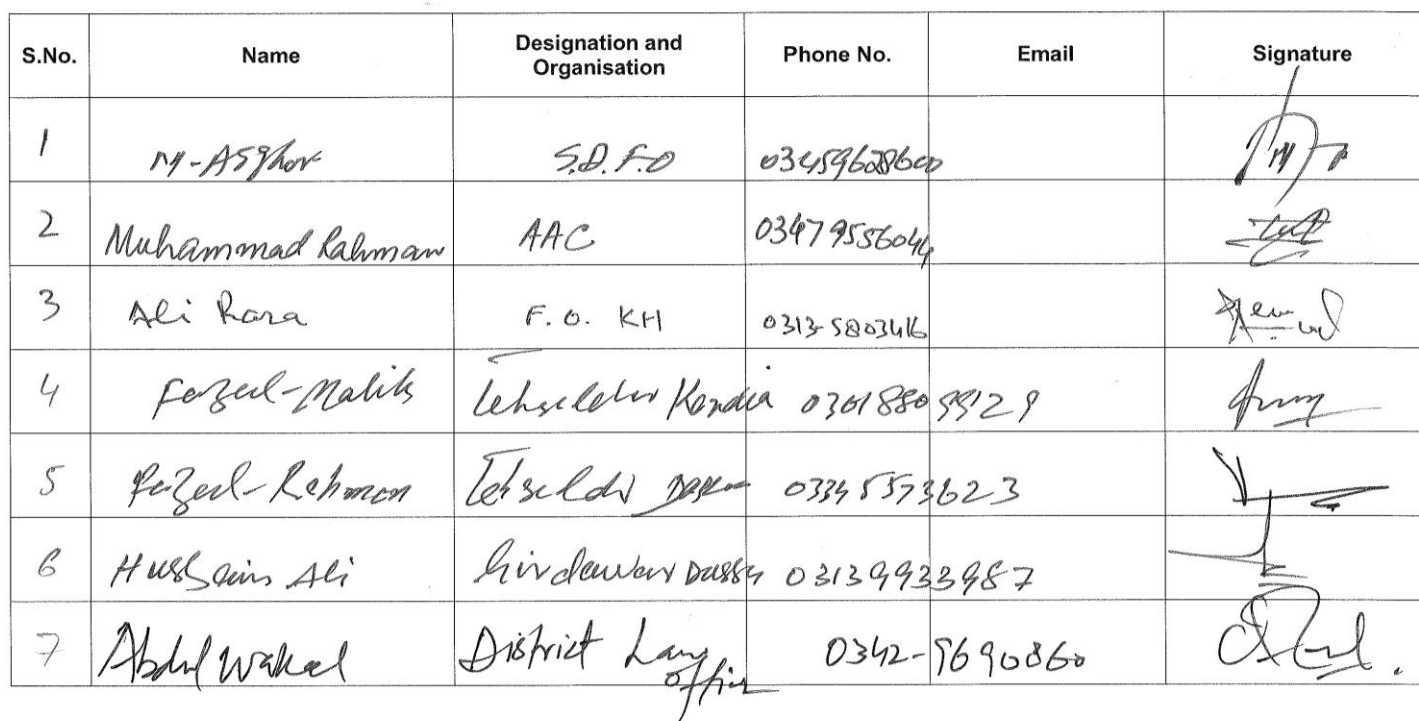 S.No. Name Designation and Organisation Phone No. Email Signature
1 M-Asghar S.D.F.O 03459628600
2 Muhammad Rahman AAC 03479556044
3 Ali Raza F.O. KH 0313-5803416
4 Fazeel-Malik Tehseeldar Kandia 03018809929
5 Fazeel-Rehman Tehseeldar 03345573623
6 Hussain Ali Girdawar Dassu 03139933987
7 Abdul Wakeel District Law Officer 0342-9690860